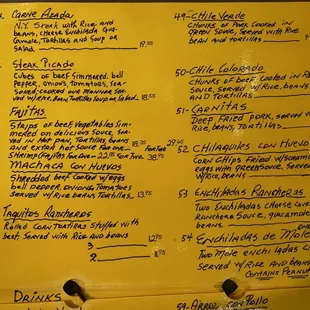 Carne Azada
N.Y. Steak with Rice and
beans, cheese Enchilada Gua-
camole, Tortillas and Soup or
Salad 19.95
Steak Picado
Cubes of beef simmered, ball
pepper, onions, tomatoes, sea-
soned; cooked our manner ser-
ved w/rice, bean Tortillas Soup or Salad
Fajitas
Strips of beef Vegetables sim-
mered on delicious sauce, ser-
ved in Hot pan, Tortillas, beans
and extra hot sauce For one
Shrimp Fajitas For one For two
Machaca con Huevos
Shredded beef cooked w/eggs
ball pepper, onions, Tomatoes
Served w/rice beans Tortillas 13.95
Taquitos Rancheros
Rolled corn Tortillas stuffed with
beef. Served with Rice and beans 12.95
3
2 8.95
Drinks
49- Chile Verde
Chunks of Pork Cooked in
Green Sauce, Served with
bean and tortillas
50- Chile Colorado
Chunks of beef Cooked in Red
Sauce, served w/Rice, beans
and Tortillas
51- Carnitas
Deep Fried Pork, served w/
Rice, beans, Tortillas
52 Chilaquiles con Huevo
Corn Chips Fried w/scram
eggs with green sauce. Served
w/Rice, beans
53 Enchiladas Rancheras
Two Enchiladas cheese cover
Ranchera sauce, guacamole
beans.
54 Enchiladas de Mole
Two mole enchiladas ch
Served w/Rice and beans
Contains Peanut
Arroz con Pollo